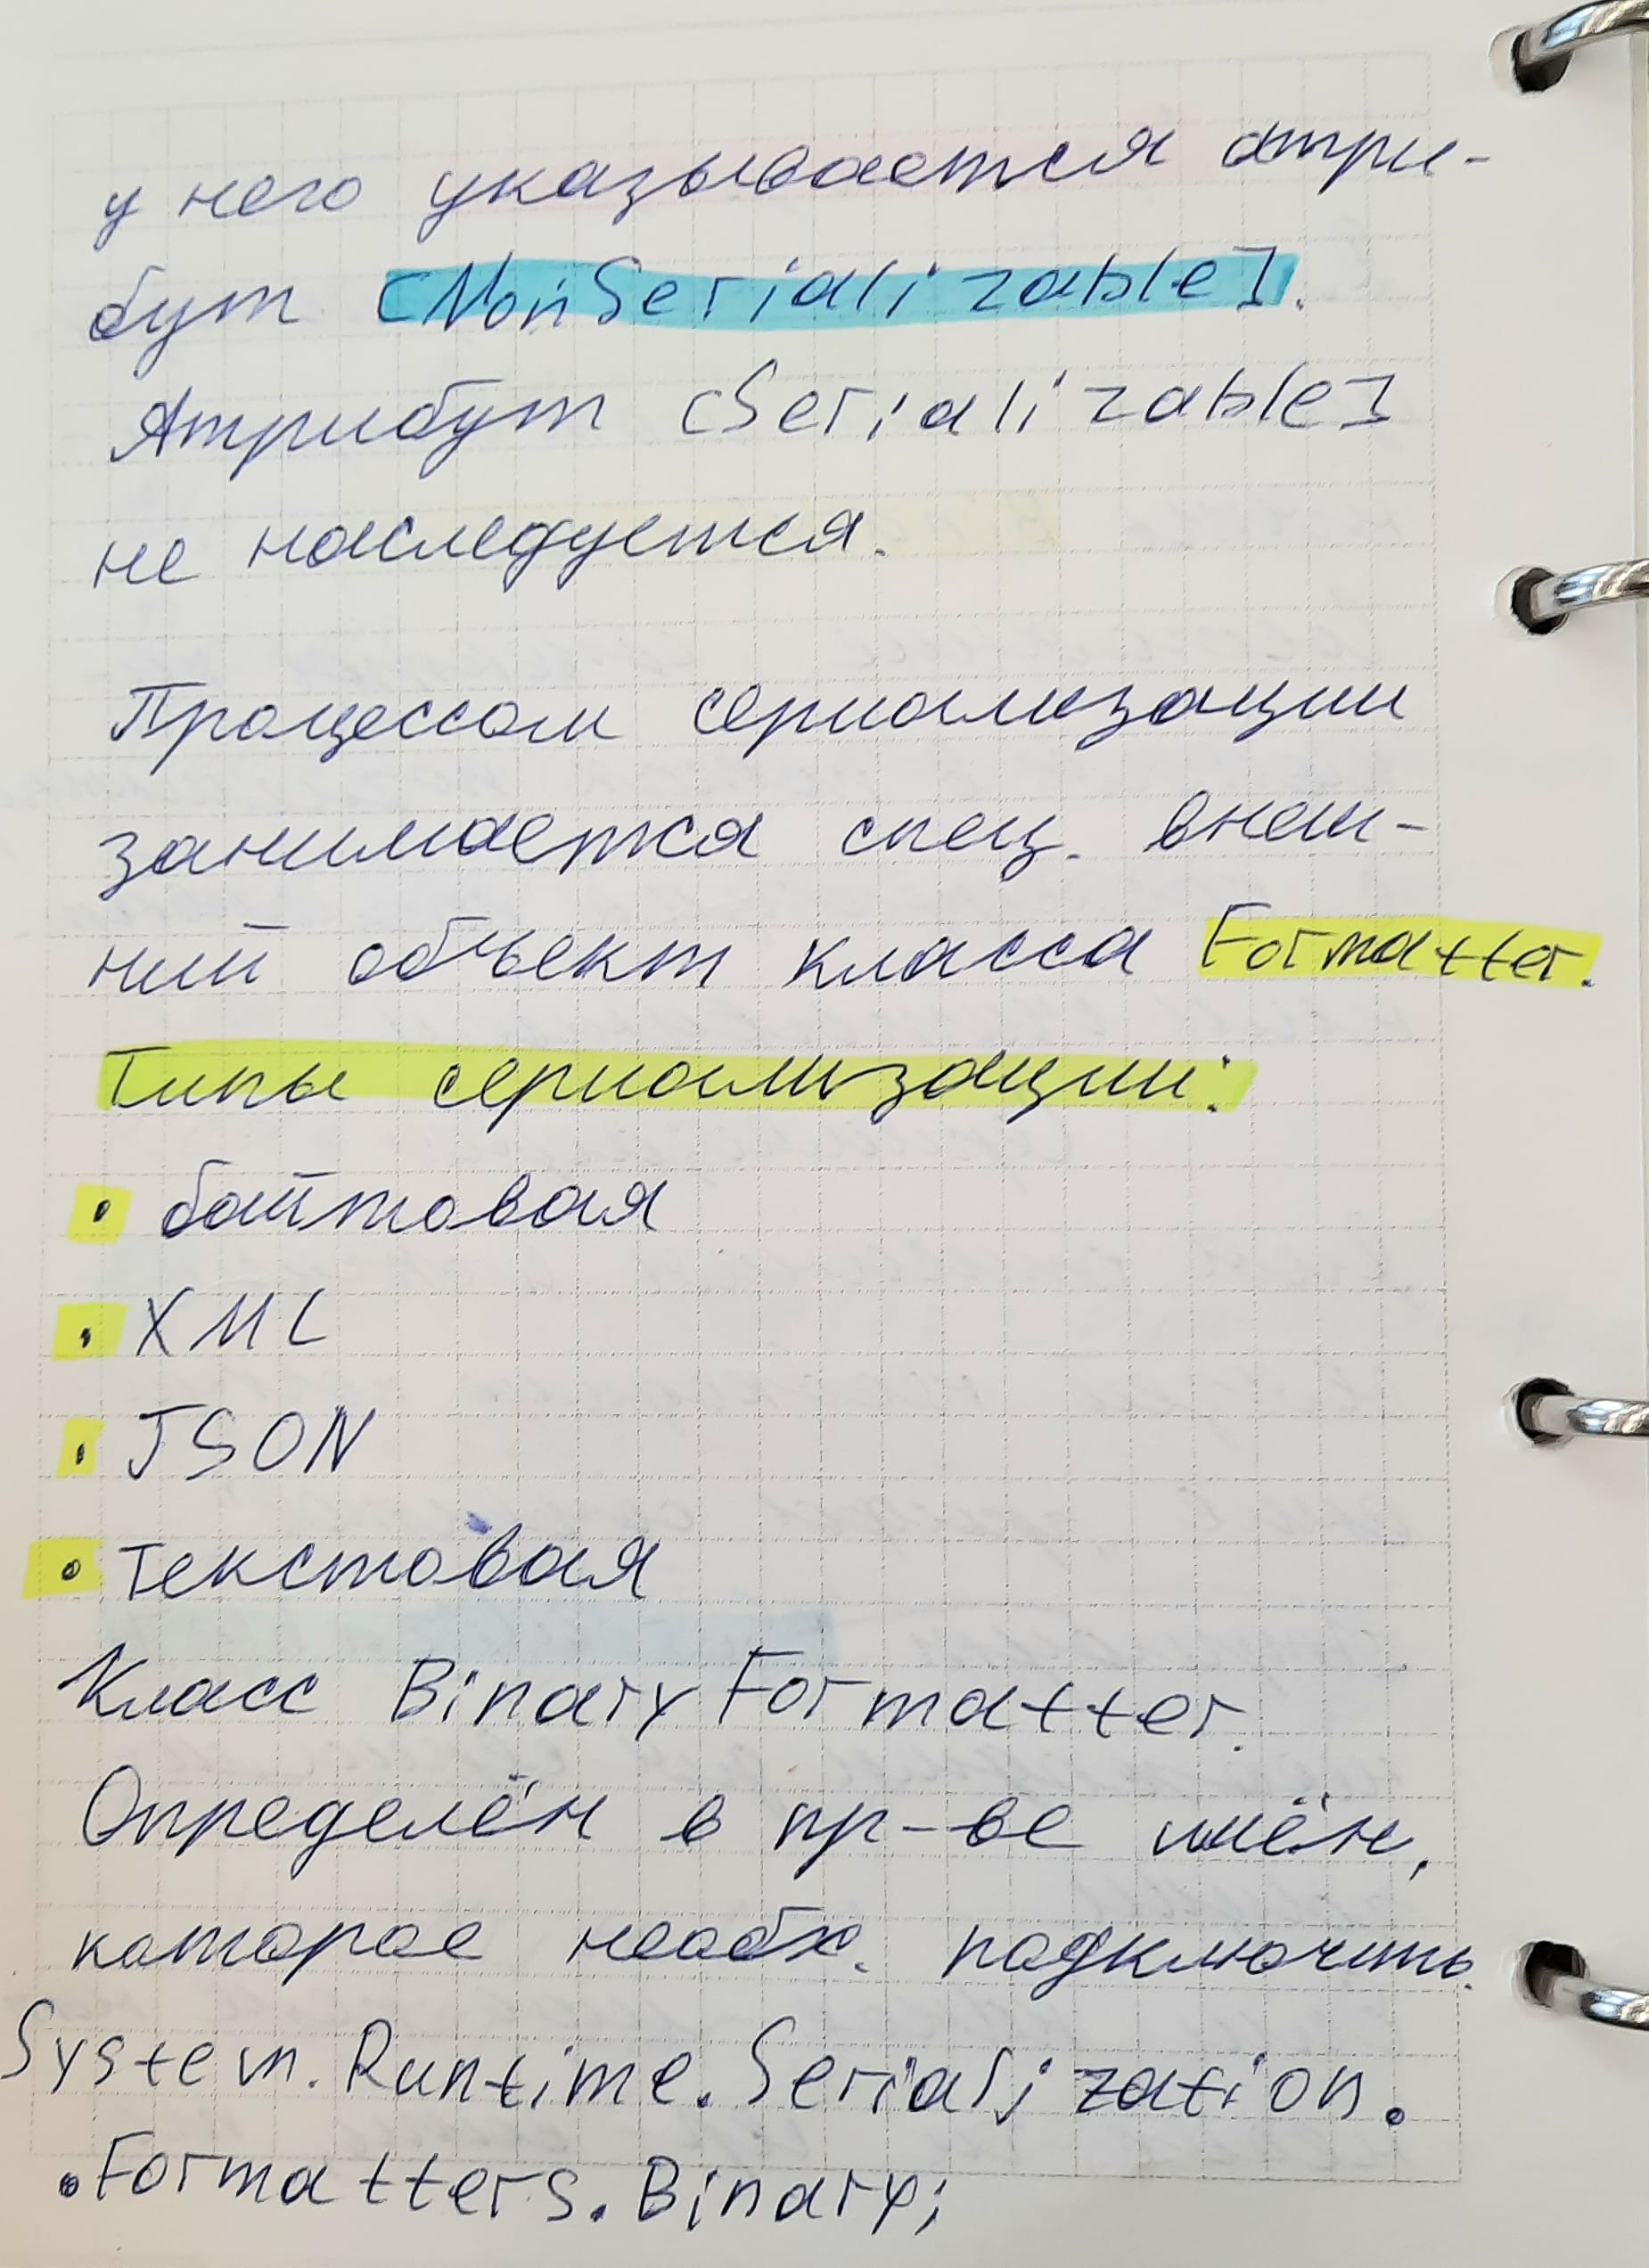 у него указывается атри-
бут [NonSerializable].
Атрибут [Serializable]
не наследуется.
Процессом сериализации
занимается спец. внеш-
ний объект класса Formatter.
Типы сериализации:
• байтовая
• XML
• JSON
• текстовая
Класс BinaryFormatter.
Определён в пр-ве имён,
которое необх. подключить.
System.Runtime.Serialization.
.Formatters.Binary;